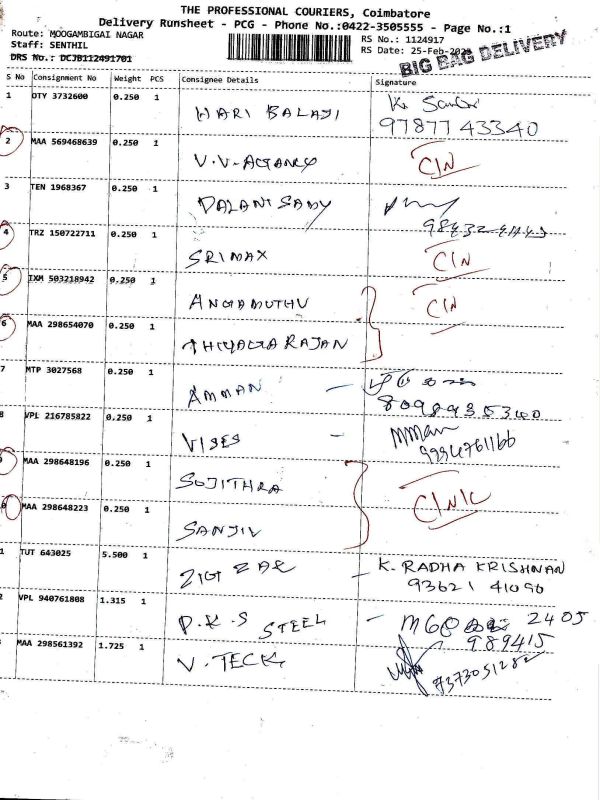 THE PROFESSIONAL COURIERS, Coimbatore
Delivery Runsheet - PCG - Phone No.:0422-3505555 - Page No.:1
Route: MOOGAMBIGAI NAGAR
RS No.: 1124917
Staff: SENTHIL
RS Date: 25-Feb
DRS No.: DCJB112491701
BIG BAG DELIVERY
S No Consignment No Weight PCS Consignee Details Signature
1 DTY 3732600 0.250 1 HARI BALAJI
97877 43340
2 MAA 569468639 0.250 1 CIN
3 TEN 1968367 0.250 1 PALANISAMY
4 TRZ 150722711 0.250 1 SRIMAX CIN
5 IXM 503218942 0.250 1 ANGAMUTHU CIN
6 MAA 298654070 0.250 1 THIYAGARAJAN
7 MTP 3027568 0.250 1 AMMAN -
8098935340
8 VPL 216785822 0.250 1 -
9994761166
MAA 298648196 0.250 1 SUJITHRA
CINIC
0 MAA 298648223 0.250 1 SANJIV
1 TUT 643025 5.500 1 ZIGI ZAG - K. RADHA KRISHNAN
93621 41090
2 VPL 940761808 1.315 1 P.K.S STEEL - 2405
989415
MAA 298561392 1.725 1 V.TECK
7373051282